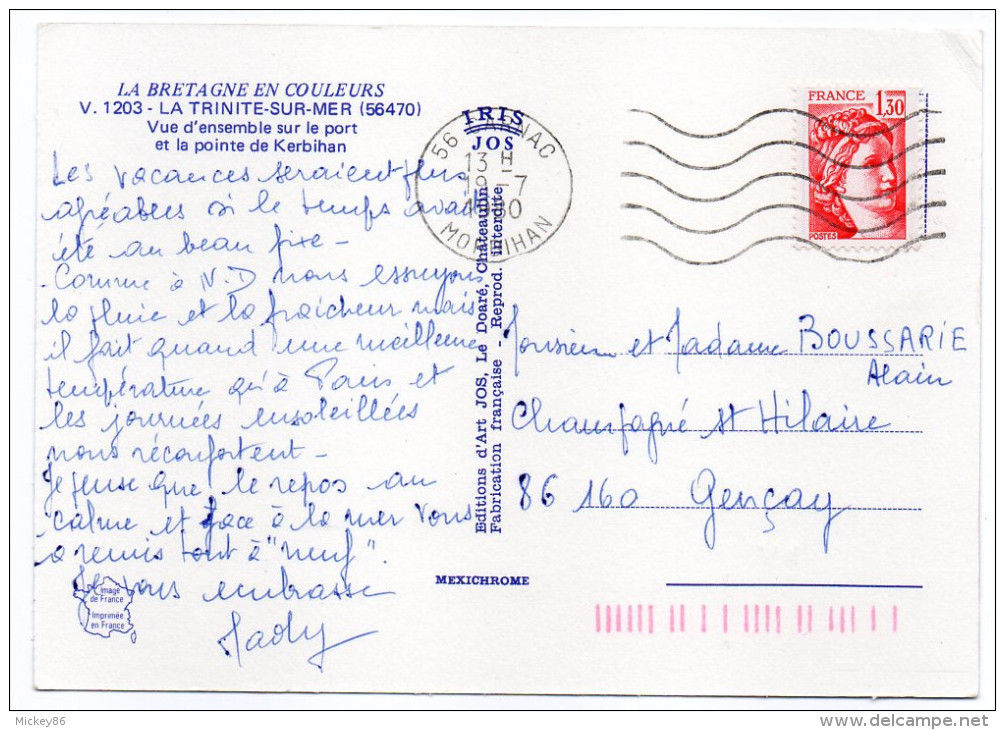 LA BRETAGNE EN COULEURS
V. 1203 - LA TRINITE-SUR-MER (56470)
Vue d'ensemble sur le port
et la pointe de Kerbihan
Les vacances seraient plus
agréables si le temps avait
été au beau fixe -
Comme à N.D nous essuyons
la pluie et la fraîcheur mais
il fait quand une meilleure
température qu'à Paris et
les journées ensoleillées
nous réconfortent -
Je pense que le repos au
calme et face à la mer vous
a remis tout à "neuf".
Je vous embrasse
Mady
Image
de France
Imprimée
en France
IRIS
JOS
Editions d'Art JOS, Le Doaré, Châteaulin
Fabrication française - Reprod. interdite
MEXICHROME
56 CARNAC
13 H
19-7
1980
MORBIHAN
FRANCE
1,30
POSTES
Monsieur et Madame BOUSSARIE
Alain
Champagné St Hilaire
86 160 Gençay
Mickey86
www.delcampe.net